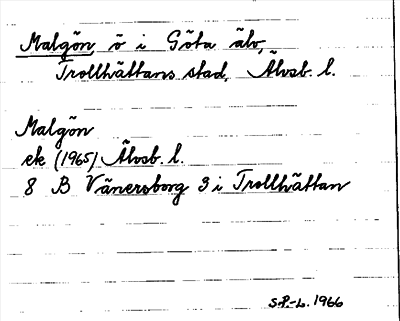 Malgön, ö i Göta älv,
Trollhättans stad, Älvsb. l.
Malgön
ek (1965) Älvsb. l.
8 B Vänersborg 3 i Trollhättan
S.P-L. 1966